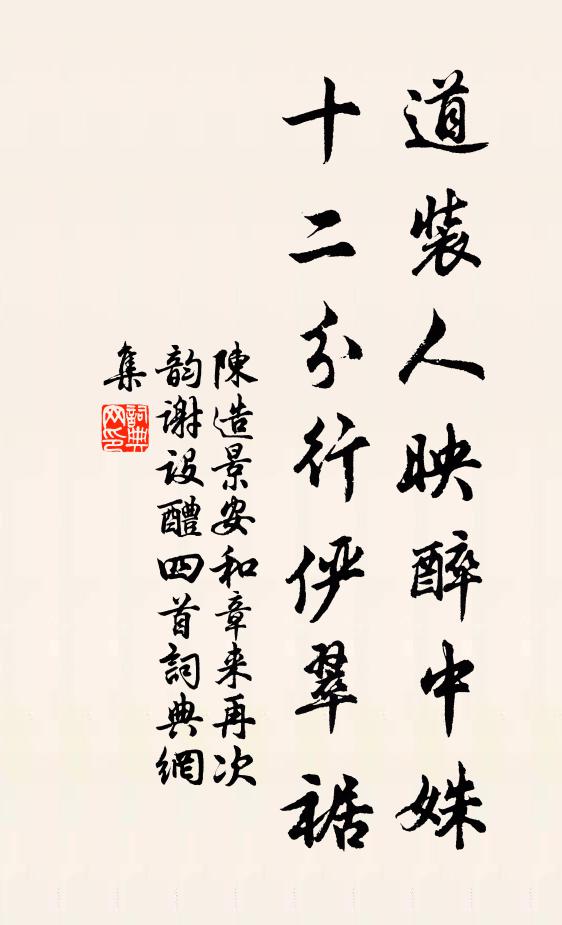 道裝人映醉中姝
十二分行俨翠裾
陳造景安和章来再次
韵谢设醴四首詞典網
集
詞典
网印